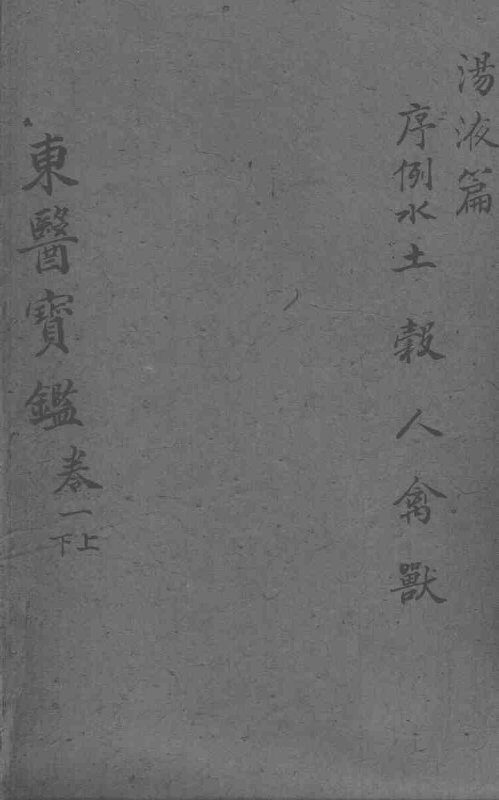 湯液篇
序例水土穀人禽獸
東醫寶鑑卷一上下